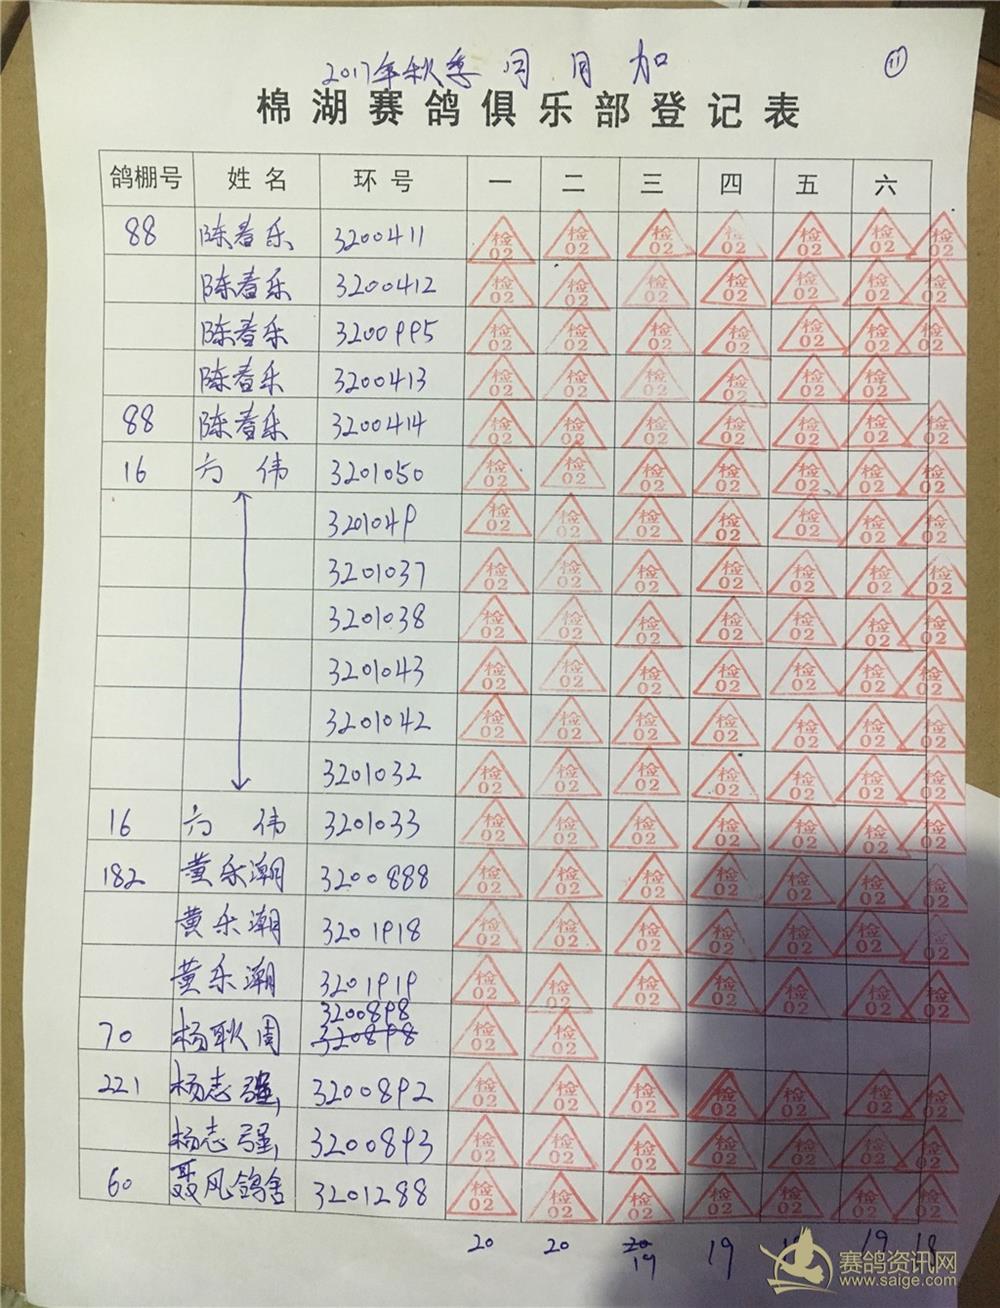 2017年秋季 闩 月 加 ⑪
棉湖赛鸽俱乐部登记表
鸽棚号 姓名 环号 一 二 三 四 五 六
88 陈春乐 3200411 检02 检02 检02 检02 检02 检02 检02
陈春乐 3200412 检02 检02 检02 检02 检02 检02 检02
陈春乐 3200995 检02 检02 检02 检02 检02 检02 检02
陈春乐 3200413 检02 检02 检02 检02 检02 检02
88 陈春乐 3200414 检02 检02 检02 检02 检02 检02 检02
16 方伟 3201050 检02 检02 检02 检02 检02 检02 检02
3201049 检02 检02 检02 检02 检02 检02 检02
3201037 检02 检02 检02 检02 检02 检02 检02
3201038 检02 检02 检02 检02 检02 检02 检02
3201043 检02 检02 检02 检02 检02 检02 检02
3201042 检02 检02 检02 检02 检02 检02 检02
3201032 检02 检02 检02 检02 检02 检02 检02
16 方伟 3201033 检02 检02 检02 检02 检02 检02 检02
182 黄乐潮 3200888 检02 检02 检02 检02 检02 检02 检02
黄乐潮 3201918 检02 检02 检02 检02 检02 检02 检02
黄乐潮 3201919 检02 检02 检02 检02 检02 检02 检02
3200898
70 杨耿周 320898 检02 检02
221 杨志强 3200892 检02 检02 检02 检02 检02 检02 检02
杨志强 3200893 检02 检02 检02 检02 检02 检02 检02
60 聂风鸽舍 3201288 检02 检02 检02 检02 检02 检02 检02
20 20 20 19 19 19 18
赛鸽资讯网
www.saige.com